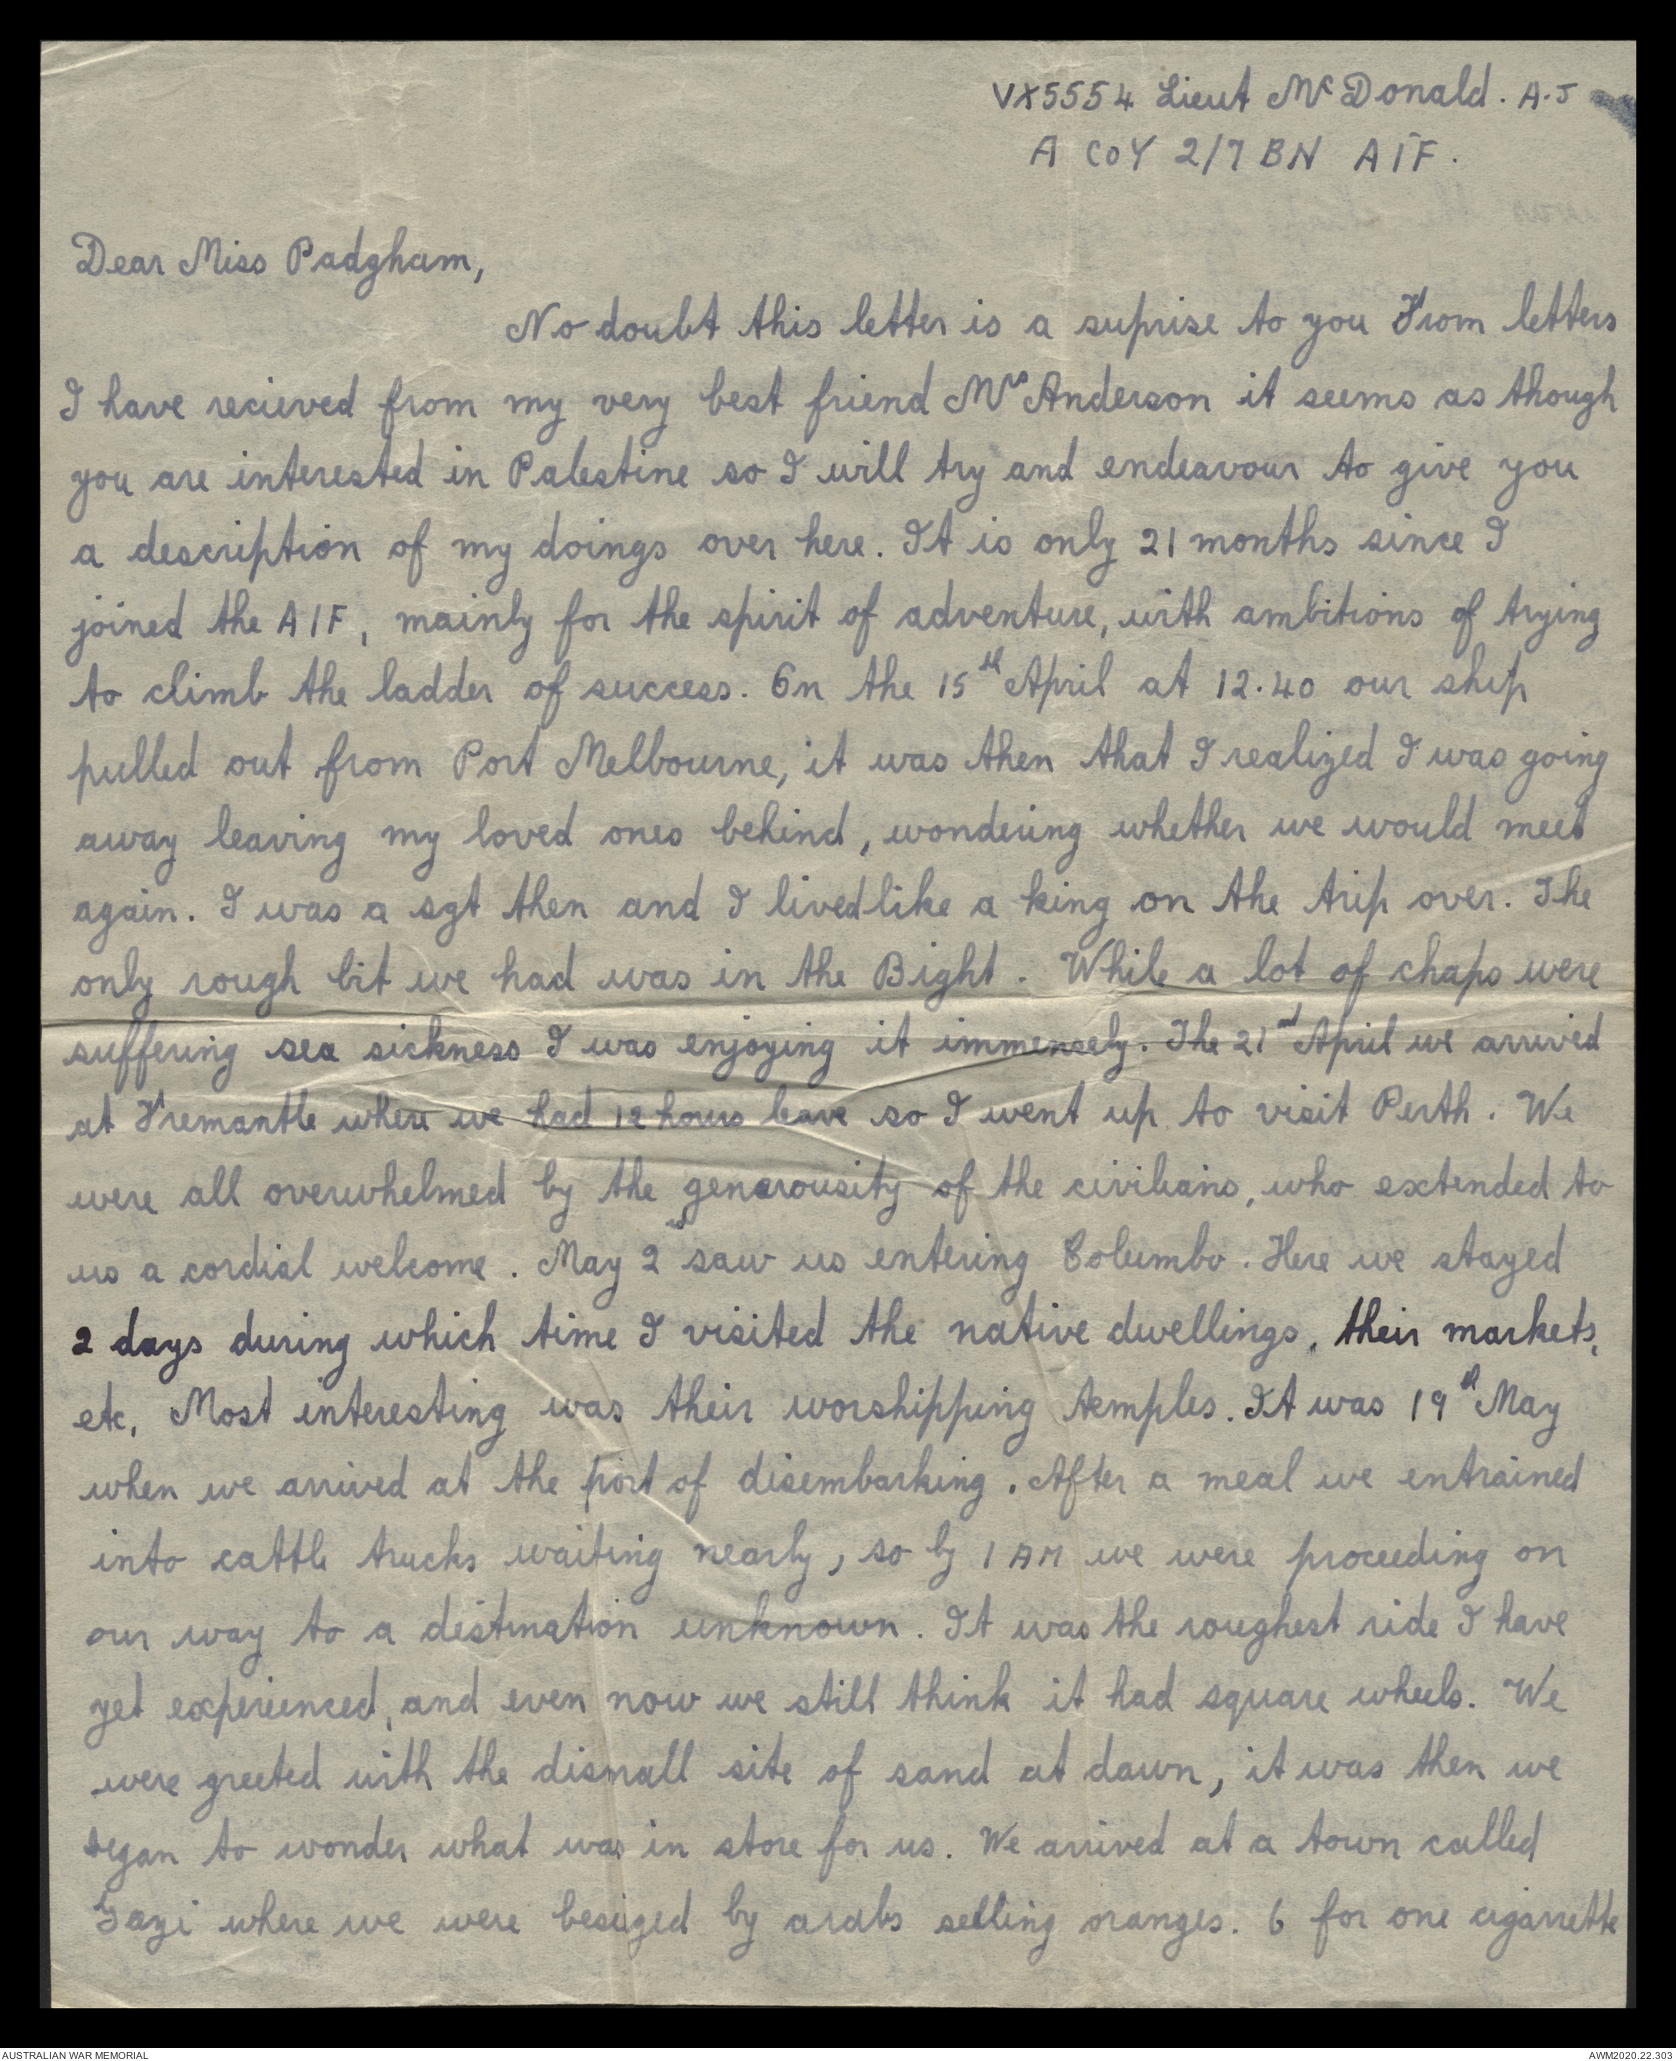 VX5554 Lieut McDonald. A.J
A COY 2/7 BN AIF.
Dear Miss Padgham,
No doubt this letter is a suprise to you From letters
I have recieved from my very best friend Mrs Anderson it seems as though
you are interested in Palestine so I will try and endeavour to give you
a description of my doings over here. It is only 21 months since I
joined the AIF, mainly for the spirit of adventure, with ambitions of trying
to climb the ladder of success. On the 15th April at 12.40 our ship
pulled out from Port Melbourne, it was then that I realized I was going
away leaving my loved ones behind, wondering whether we would meet
again. I was a sgt then and I lived like a king on the trip over. The
only rough bit we had was in the Bight. While a lot of chaps were
suffering sea sickness I was enjoying it immensely. The 21st April we arrived
at Fremantle where we had 12 hours leave so I went up to visit Perth. We
were all overwhelmed by the generousity of the civilians, who extended to
us a cordial welcome. May 2nd saw us entering Columbo. Here we stayed
2 days during which time I visited the native dwellings, their markets,
etc, Most interesting was their worshipping temples. It was 19th May
when we arrived at the port of disembarking. After a meal we entrained
into cattle trucks waiting nearly, so by 1 AM we were proceeding on
our way to a distination unknown. It was the roughest ride I have
yet experienced, and even now we still think it had square wheels. We
were greeted with the dismall site of sand at dawn, it was then we
began to wonder what was in store for us. We arrived at a town called
Gazi where we were besieged by arabs selling oranges. 6 for one cigarrette
AUSTRALIAN WAR MEMORIAL
AWM2020.22.303